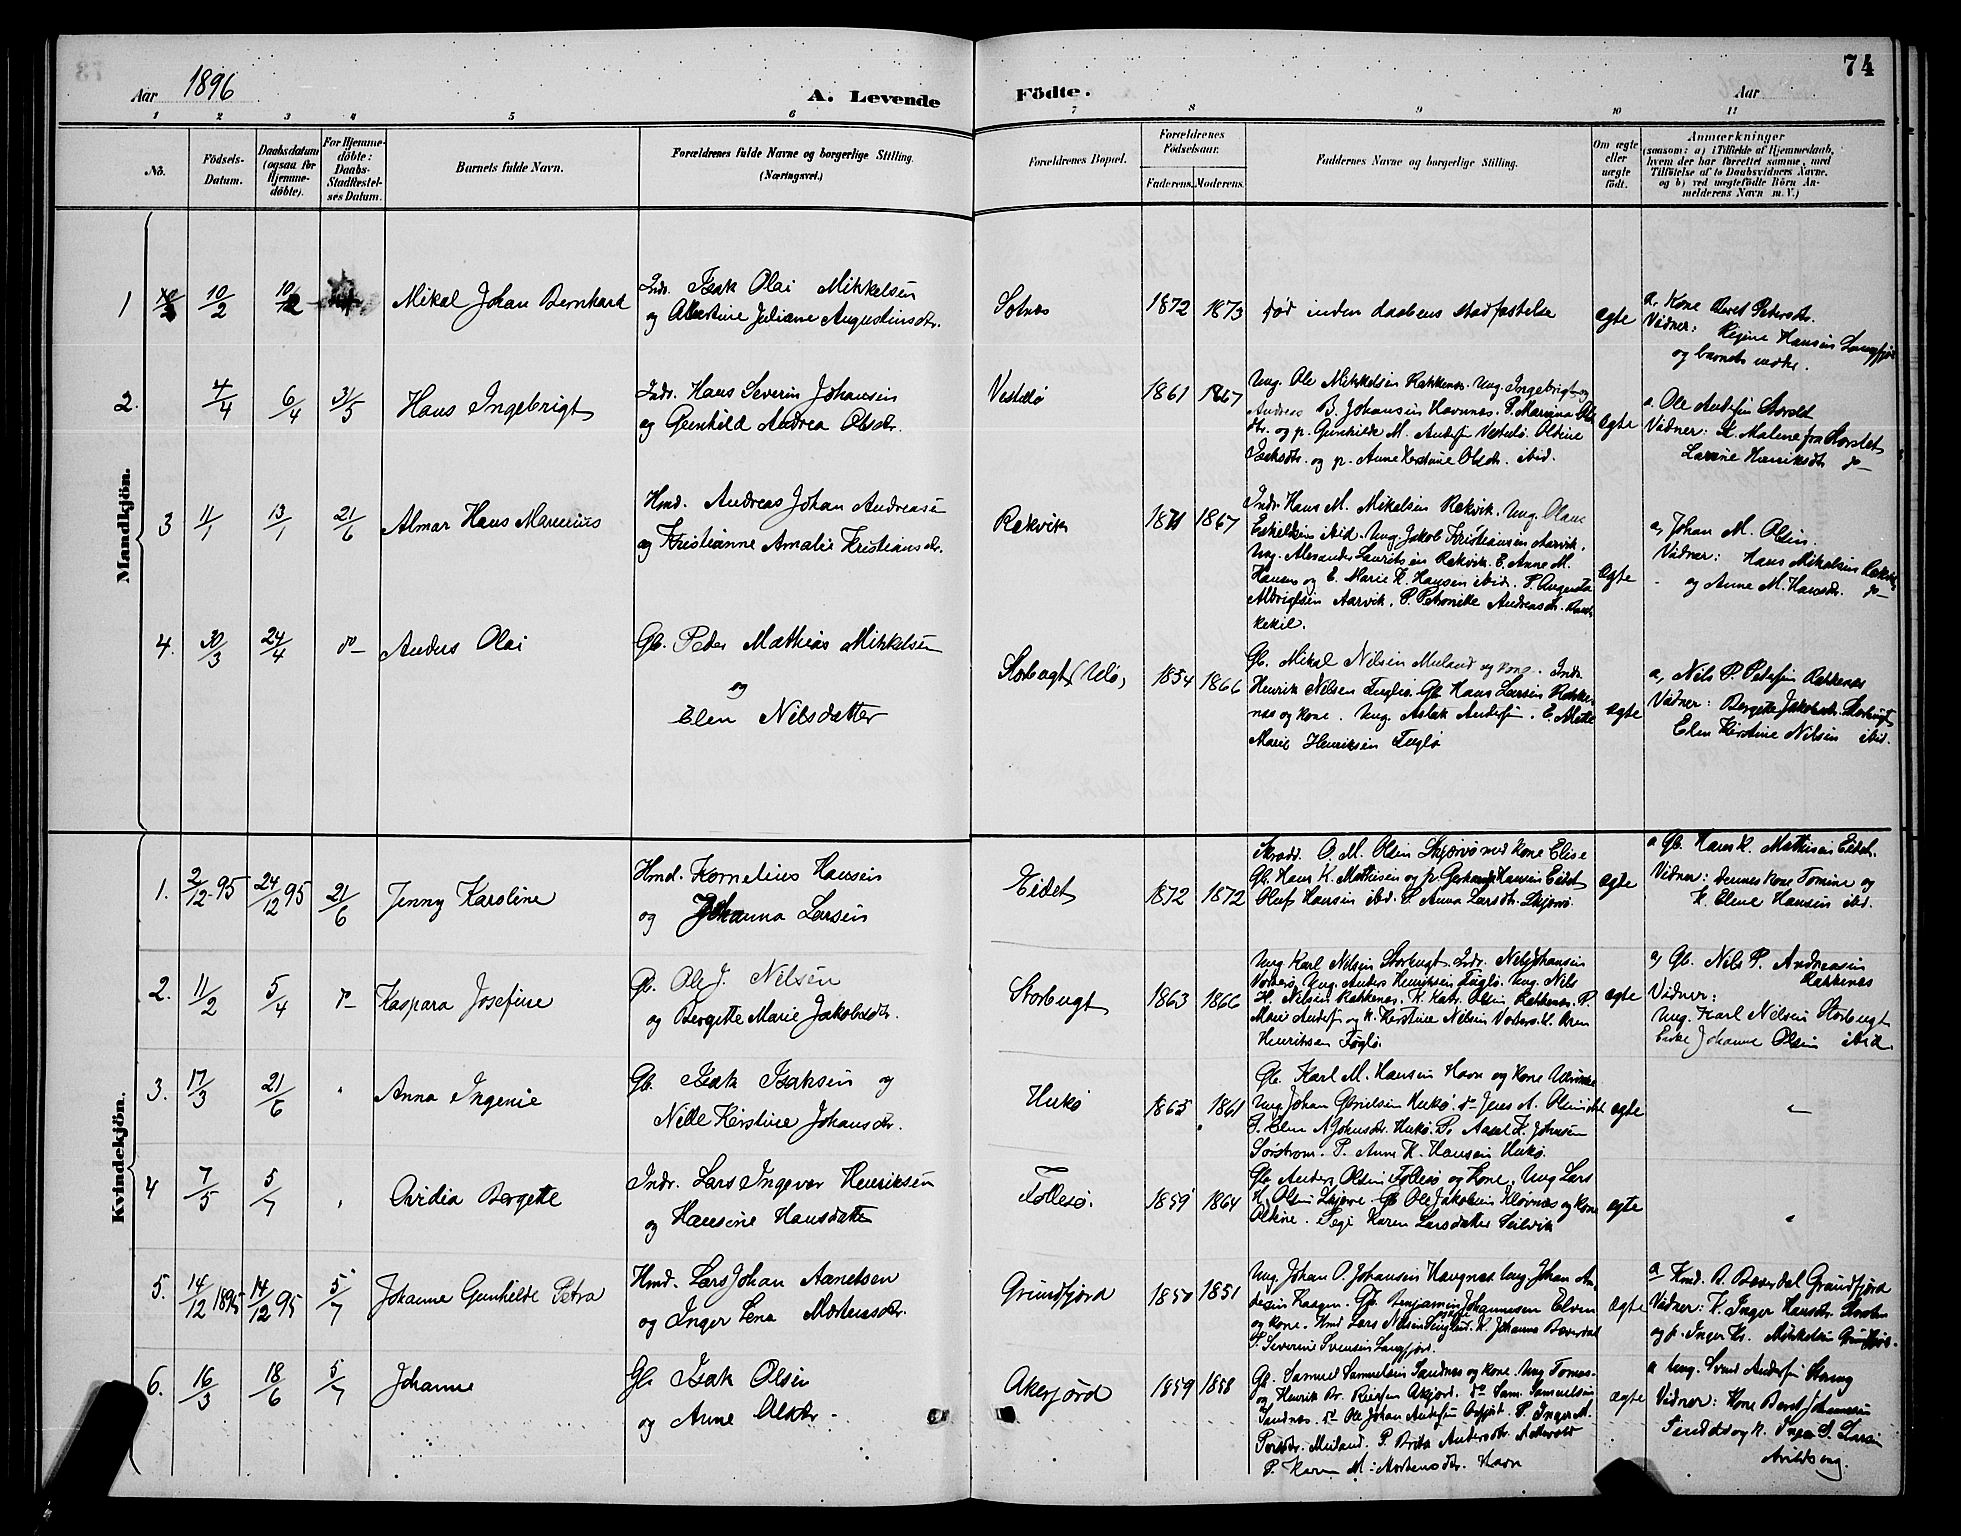 74
Aar 1896
A. Levende Födte.
Aar
1 2 3 4 5 6 7 8 9 10 11
No.
Födsels-
Datum.
Daabsdatum
(ogsaa for
Hjemme-
döbte).
For Hjemme-
döbte:
Daabs-
Stadfæstel-
ses Datum.
Barnets fulde Navn.
Forældrenes fulde Navne og borgerlige Stilling.
(Næringsvei.)
Forældrenes Bopæl.
Forældrenes
Födselsaar.
Faderens. Moderens.
Faddernes Navne og borgerlige Stilling.
Om ægte
eller
uægte
födt.
Anmærkninger
(saasom: a) i Tilfælde af Hjemmedaab,
hvem der har forrettet samme, med
Tilföielse af to Daabsvidners Navne.
og b) ved uægtefödte Börn An-
melderens Navn m. V.)
Mandkjön.
1 10/2 10/2 Mikal Johan Bernhard
Indr. Isak Olai Mikkelsen
og Albertine Juliane Augustinusdtr.
Sotnes 1872 1873
Död inden daabens stadfæstelse
ægte
a, Kone Beret Petersdtr.
Vidner: Regine Hansen Langfjor
og barnets moder.
2. 4/4 6/4 31/5 Hans Ingebrigt
Indr. Hans Severin Johansen
og Gunhild Andrea Olsdtr.
Vesterö 1861 1867
Ung. Ole Mikkelsen Rakkenes. Ung. Ingebrigt og
Andreas B. Johansen Havnnes. P. Marrina Ols
dtr. og p. Gunhilde M. Andersen Vesterö. Oldine
Isaksdtr. og p. Anne Kerstine Olsdtr. ibid.
ægte
a. Ole Andersen Storslet
Vidner: K. Malene fra Storslet
Lavine Henriksdtr do
3 11/1 13/1 21/6 Almar Hans Marenius
Hmd. Andreas Johan Andreasen
og Kristianne Amalie Kristiansdtr.
Rekvik 1871 1867
Indr. Hans M. Mikelsen Rekvik. Ung. Olaus
Eskeldsen ibid. Ung. Jakob Kristiansen Aarvik.
Ung. Alexander Lauritsen Rekvik. E. Anne M.
Hansen og E. Marie K. Hansen ibid. P. Augusta
Albrigtsen Aarvik. P. Petronille Andreasdtr.
ægte
a, Johan M. Olsen.
Vidner: Hans Mikalsen Rekvik
og Anne M. Hansdtr. do
4. 30/3 24/4 do Anders Olai
Gb. Peder Mathias Mikkelsen
og
Elen Nilsdatter
Storbugt (Ulö) 1854 1866
Gb. Mikal Nilsen Meiland og kone. Indr.
Henrik Nilsen Fuglö. Gb. Hans Larsen Rakke-
nes og kone. Ung. Aslak Andersen. E. Mette
Marie Henriksen Fuglö
ægte
a, Nils P. Petersen Rakkenes
Vidner: Bergette Jakobsdtr. Storbugt
Elen Kerstine Nilsen ibid.
Kvindekjön.
1. 2/12-95 24/12 95 21/6 Jenny Karoline
Hmd. Kornelius Hansen
og Johanna Larsen
Eidet 1872 1872
Skrædd. O. M. Olsen Skjervö med kone Elise
Gb. Hans K. Mathisen og p. Gerhardj Hansen Eidet
Oluf Hansen ibid. P. Anna Larsdtr. Skjervö
ægte
a Gb. Hans K. Mathisen Eidet.
Vidner: dennes kone Tomine og
K. Elene Hansen ibid.
2. 11/2 5/4 do Kaspara Josefine
Gb. Ole J. Nilsen
og Bergette Marie Jakobsdtr.
Storbugt 1863 1866
Ung. Karl Nilsen Storbugt. Indr. Nils Johansen
Vorterö. Ung. Anders Henriksen Fuglö. Ung. Nils
H. Nilsen Rakkenes. K. Katr. Olsen Rakkenes. P.
Mari Andersen og K. Kerstine Nilsen Vorterö. K. Aren
Henriksen Fuglö.
ægte
a, Gb. Nils P. Andreasen
Rakkenes
Vidner:
Ung. Karl Nilsen Storbugt
Enke Johanne Olsen ibid.
3. 17/3 21/6 " Anna Ingenie
Gb. Isak Isaksen og
Nelle Kerstine Johansdtr.
Hukö 1865 1861
Gb. Karl M. Hansen Havn og kone Ulrikke
Ung. Johan Gabrielsen Hukö. do Jens A. Olsen ibid
P. Elen A. Johnsdtr. Hukö. P. Aasel K. Johnsen
Sörström. P. Anne K. Hansen Hukö.
ægte
"
4 7/5 5/7 " Ovidia Bergette
Indr. Lars Ingevor Henriksen
og Hansine Hansdatter
Follesö. 1859 1864
Gb. Anders Olsen Follesö og Kone. Ung Lars
H. Olsen Skjervö. Gb. Ole Jakobsen Klövnes og kone
Oldine. Pige Karen Larsdatter Seilvik
ægte
"
5. 14/12 1895 14/12 95 5/7 Johanne Gunhilde Petra
Hmd. Lars Johan Aanetsen
og Inger Lena Mortensdtr.
Grundfjord 1850 1851
Ung. Johan O. Johansen Haugnes. Ung. Johan An-
dersen Kaagen. Gb. Benjamin Johannesen Elven
og kone. Hmd Lars Nilsen K. Johanna Bæverdal
P. Severine Svensen Langfjord.
ægte
a Hmd. B. Bæverdal Grundfjord
Vidner: K. Inger Hansdtr.
og p. Inger Kr. Mikkelsen Grundfjord.
6. 16/3 18/6 5/7 Johanne
Gb Isak Olsen
og Anne Olsdtr.
Akerfjord 1859 1858
Gb. Samuel Samuelsen Sandnes og kone. Ung Tomas-
og Henrik Br. Akfjord. do Sam. Samuelsen
Sandnes. do Ole Johan Andersen P. Inger M.
Persdtr. Meiland. P. Brita Andersdtr.
P. Karen M. Mortensdtr. Havn
ægte
a Ung. Svend Andersen
Vidner: Kone Beret Johannesen
og K. Inger S. Larsen